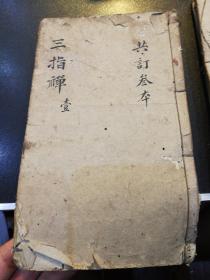 共訂叄本
三指禪 壹